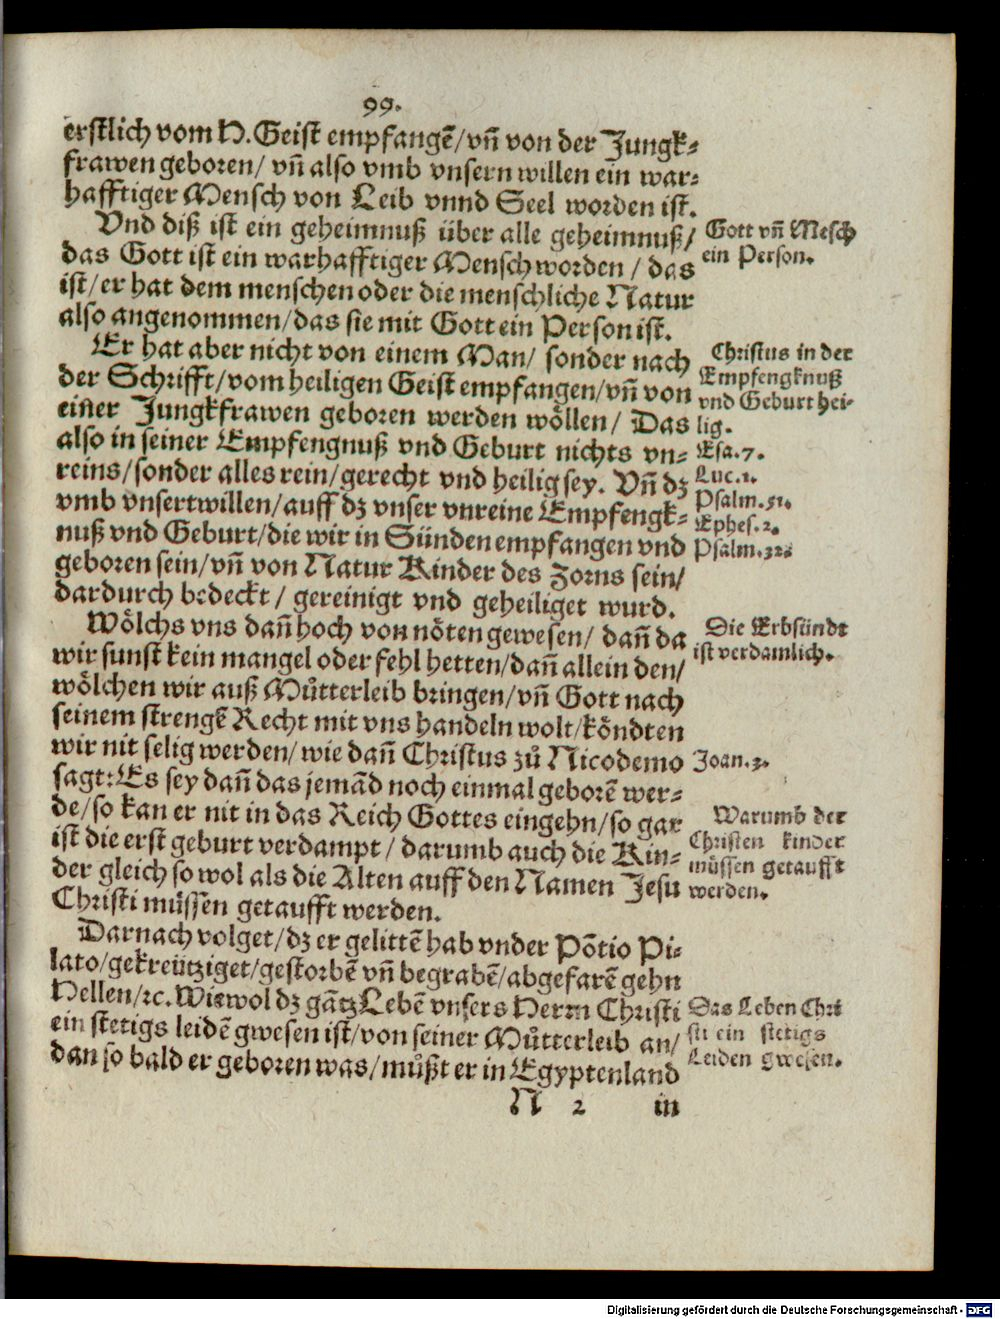 99.
erstlich vom H. Geist empfangē/ vñ von der Jungk-
frawen geboren/ vñ also vmb vnsern willen ein war-
hafftiger Mensch von Leib vnnd Seel worden ist.
Vnd diß ist ein geheimnuß über alle geheimnuß/
das Gott ist ein warhafftiger Mensch worden / das
ist/ er hat dem menschen oder die menschliche Natur
also angenommen/ das sie mit Gott ein Person ist.
Gott vñ Mēsch
ein Person.
Er hat aber nicht von einem Man/ sonder nach
der Schrifft/ vom heiligen Geist empfangen/ vñ von
einer Jungkfrawen geboren werden wöllen/ Das
also in seiner Empfengnuß vnd Geburt nichts vn-
reins/ sonder alles rein/ gerecht vnd heilig sey. Vñ dz
vmb vnsertwillen/ auff dz vnser vnreine Empfengk-
nuß vnd Geburt/ die wir in Sünden empfangen vnd
geboren sein/ vñ von Natur Kinder des Zorns sein/
dardurch bedeckt / gereinigt vnd geheiliget wurd.
Christus in der
Empfengknuß
vnd Geburt hei-
lig.
Esa. 7.
Luc. 1.
Psalm. 51.
Ephes. 2.
Psalm. 32.
Wölchs vns dañ hoch von nöten gewesen/ dañ da
wir sunst kein mangel oder fehl hetten/ dañ allein den/
wölchen wir auß Můtterleib bringen/ vñ Gott nach
seinem strengē Recht mit vns handeln wolt/ köndten
wir nit selig werden/ wie dañ Christus zů Nicodemo
sagt: Es sey dañ das jemād noch einmal geborē wer-
de/ so kan er nit in das Reich Gottes eingehn/ so gar
ist die erst geburt verdampt / darumb auch die Kin-
der gleich so wol als die Alten auff den Namen Jesu
Christi müssen getaufft werden.
Die Erbsündt
ist verdamlich.
Joan. 3.
Warumb der
Christen kinder
müssen getaufft
werden.
Darnach volget/ dz er gelittē hab vnder Pōtio Pi-
lato/ gekreütziget/ gestorbē vñ begrabē/ abgefarē gehn
Hellen/ ꝛc. Wiewol dz gātz Lebē vnsers Herrn Christi
ein stetigs leidē gwesen ist/ von seiner Můtterleib an/
dan so bald er geboren was/ můßt er in Egyptenland
Das Leben Chri
sti ein stetigs
Leiden gwesen.
N 2 in
Digitalisierung gefördert durch die Deutsche Forschungsgemeinschaft - DFG